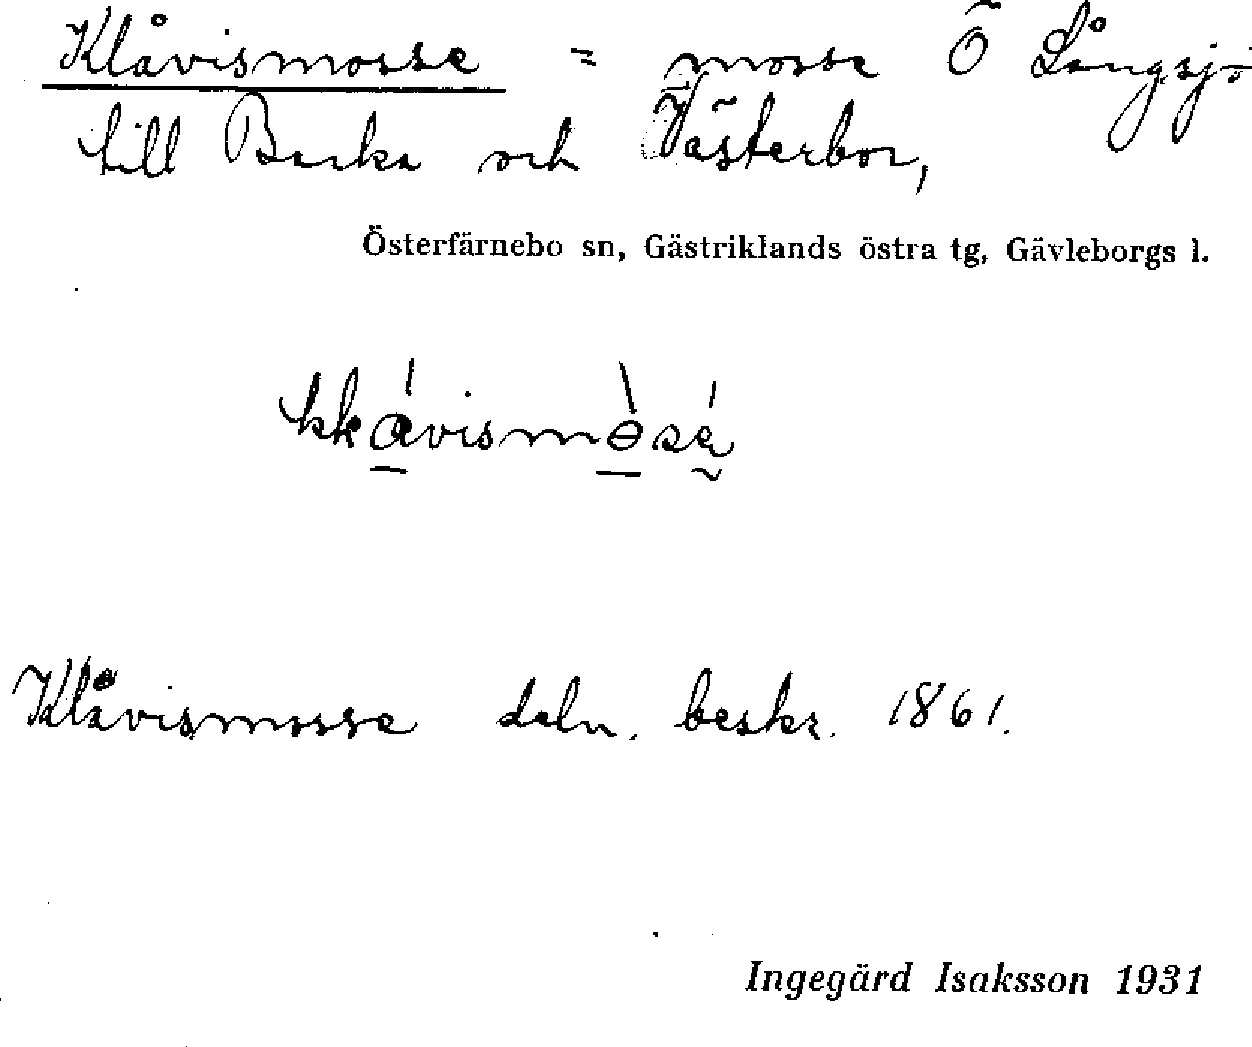 Klåvismosse = mosse Ö Långsjö
till Backa och Västerbor,
Österfärnebo sn, Gästriklands östra tg, Gävleborgs l.
Klåvismosse deln. beskr. 1861.
Ingegärd Isaksson 1931